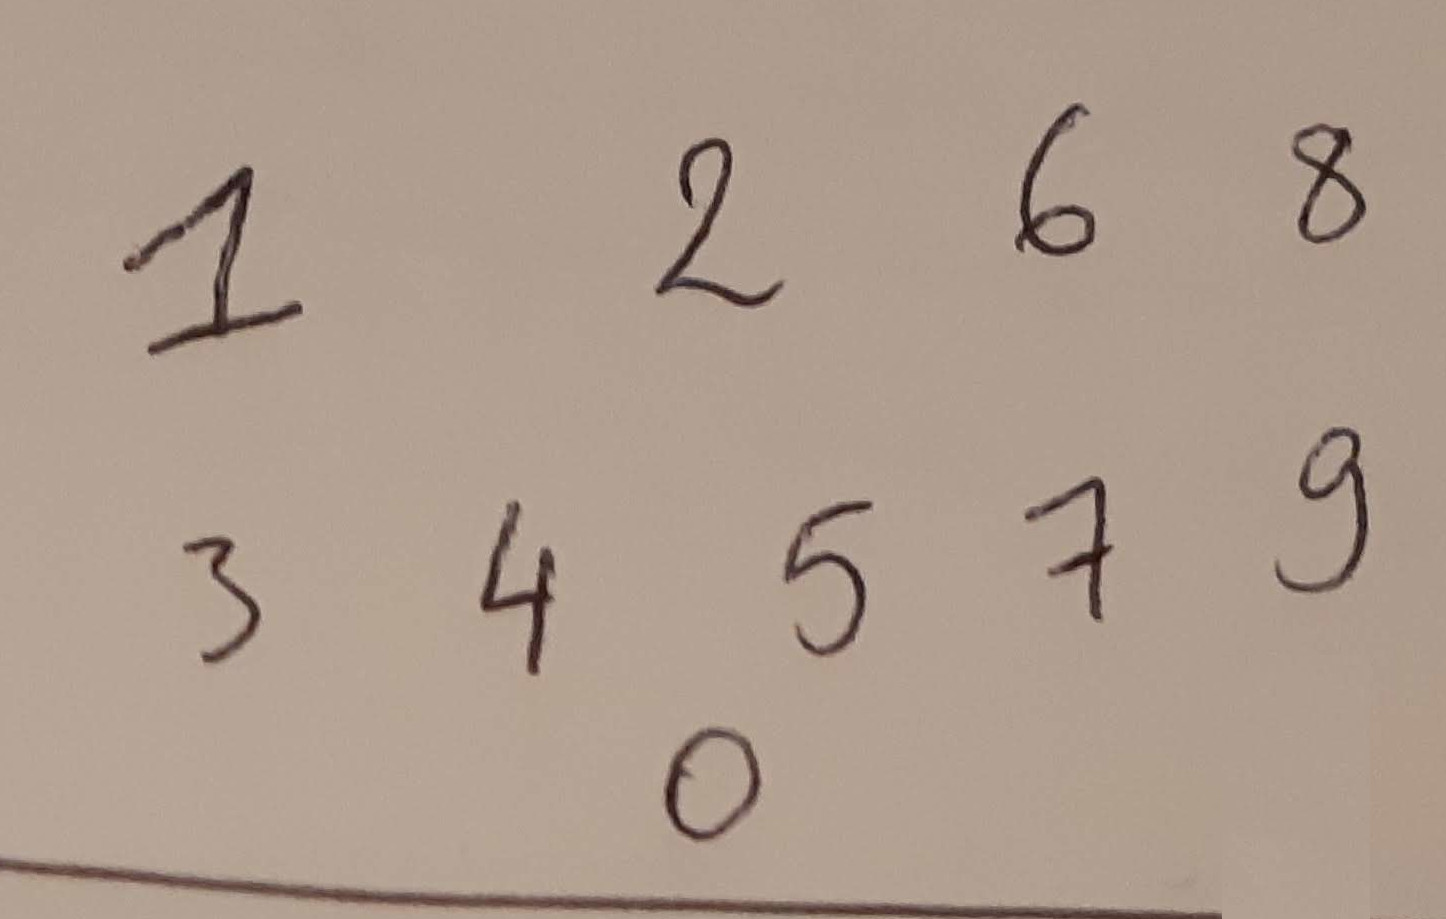 1 2 6 8
3 4 5 7 9
0